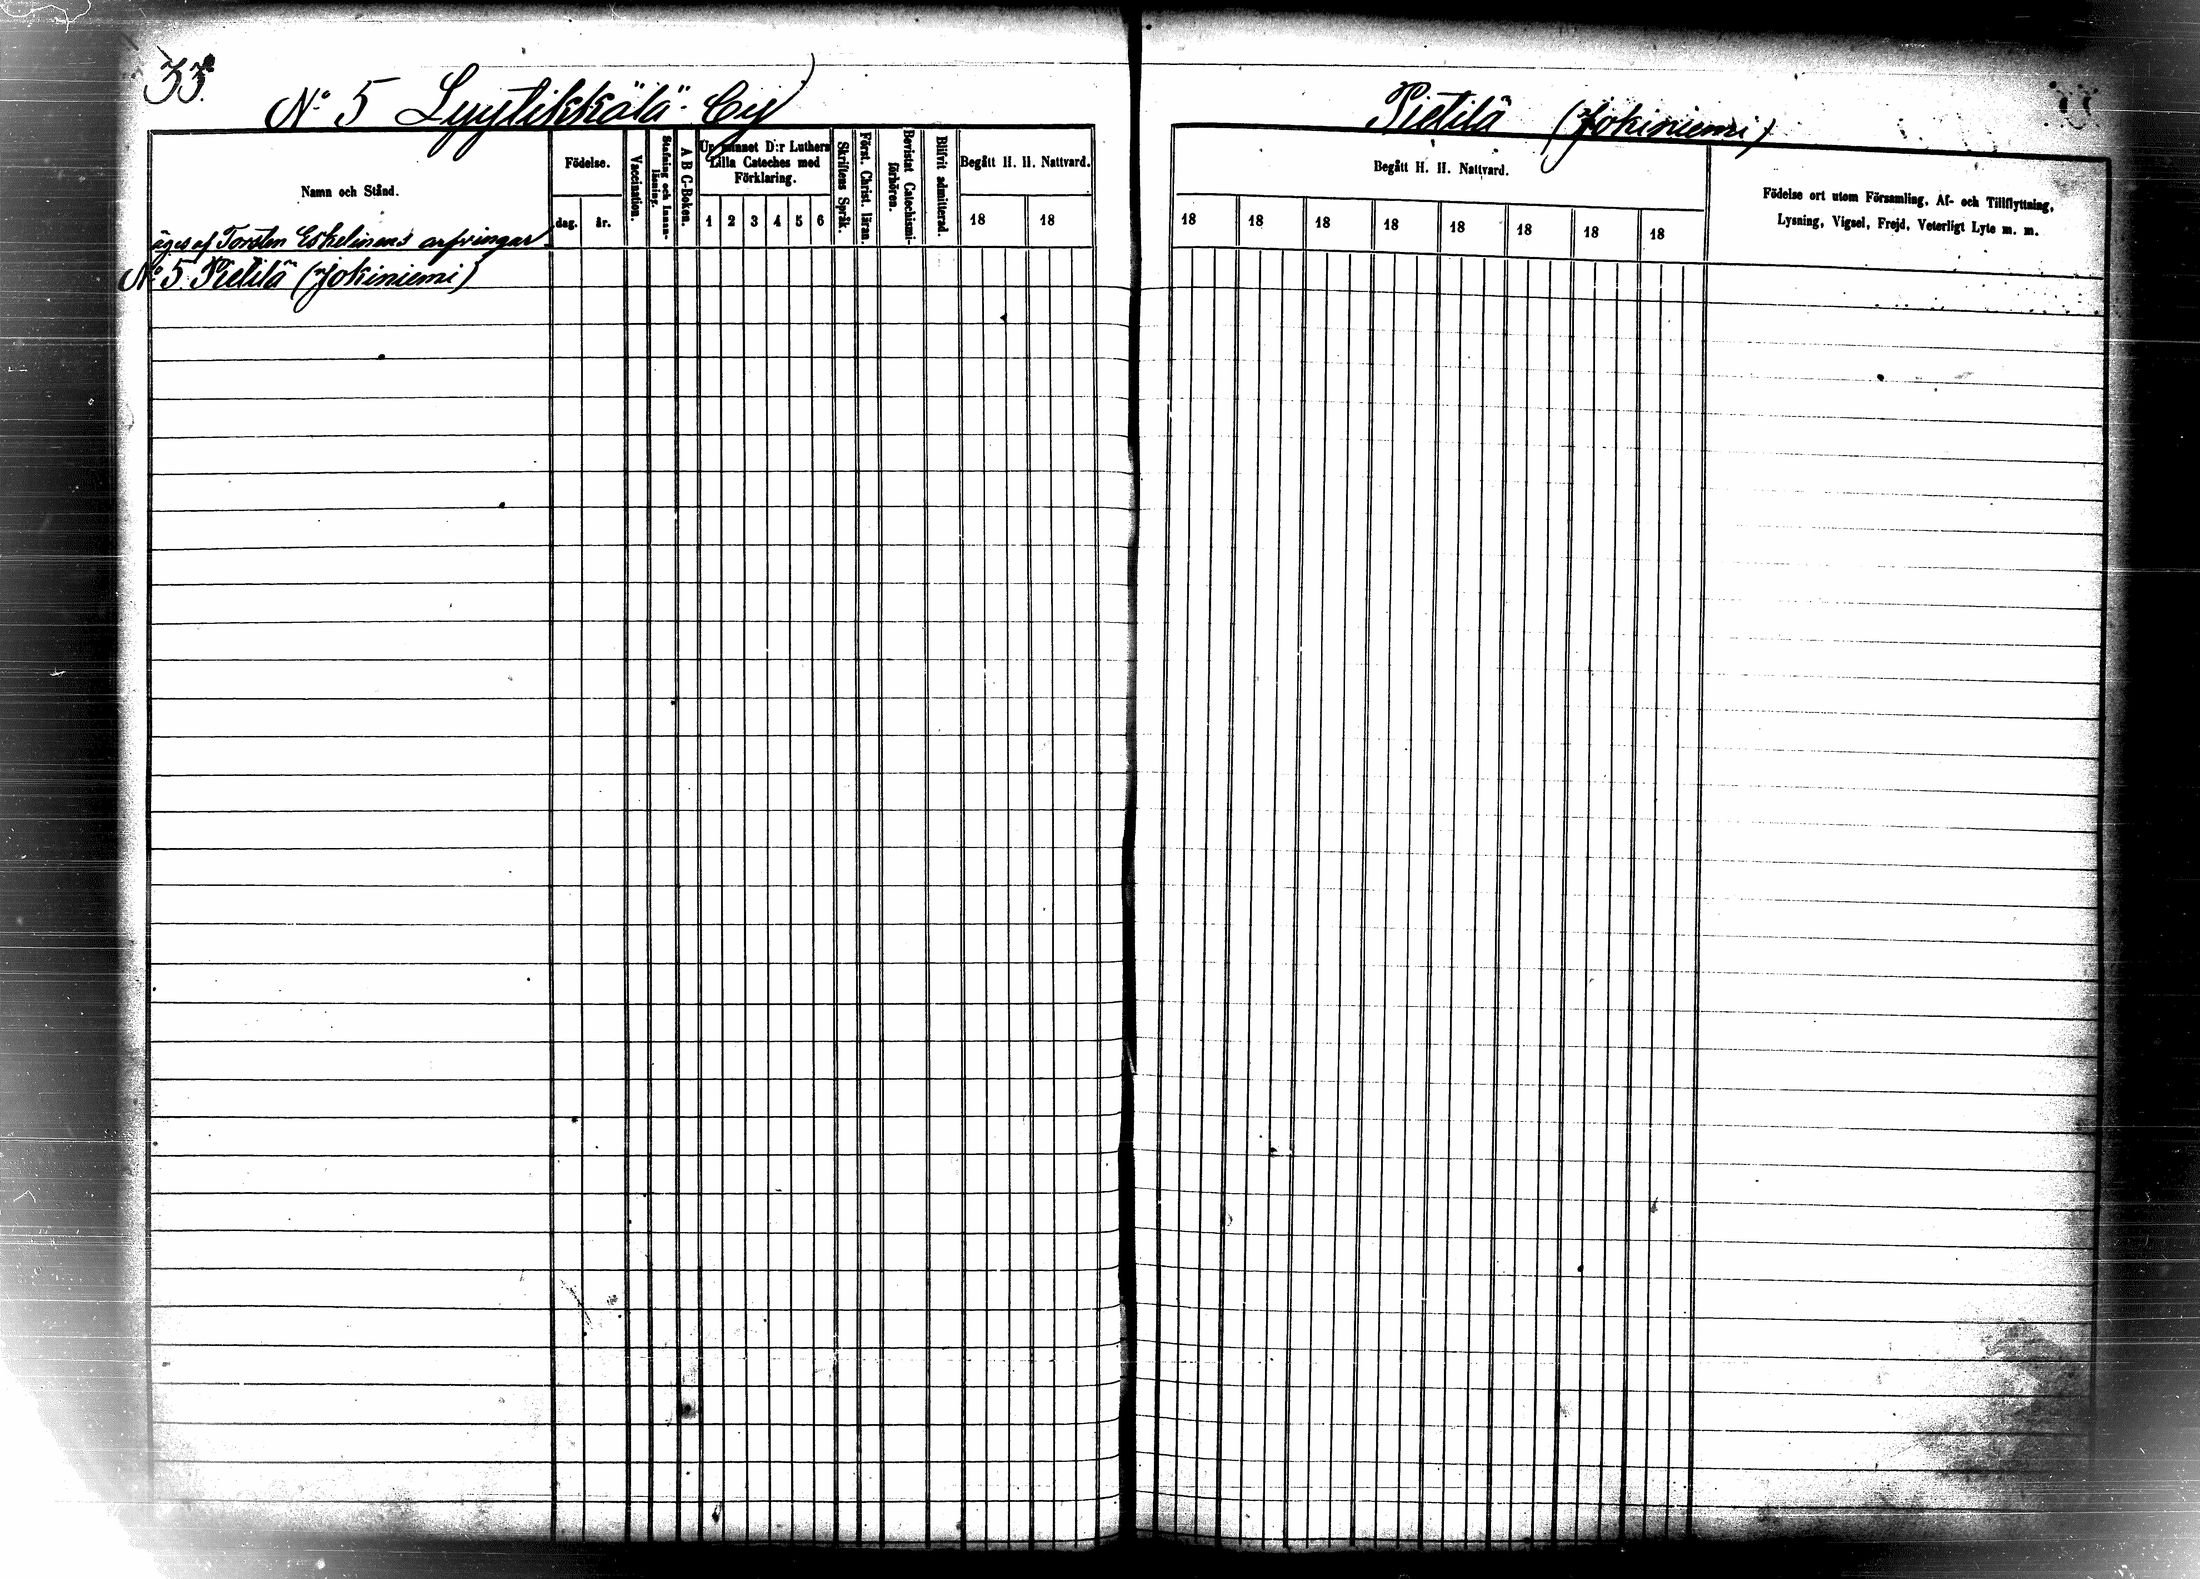 33.
No 5 Lyytikkälä By
Pietilä (Jokiniemi)
Namn och Stånd.
Födelse.
dag.
år.
Vaccination.
Stafning och Innan-
läsning.
A B C-Boken.
Ur minnet D:r Luthers
Lilla Cateches med
Förklaring.
1 2 3 4 5 6
Skriftens Språk.
Först. Christ. läran.
Bevistat Catechismi-
förhören.
Blifvit admitterad.
Begått H. H. Nattvard.
18 18
Begått H. H. Nattvard.
18 18 18 18 18 18 18 18
Födelse ort utom Församling, Af- och Tillflyttning,
Lysning, Vigsel, Frejd, Veterligt Lyte m. m.
äges af Torsten Eskelinens arfvingar
No 5. Pietilä (Jokiniemi)